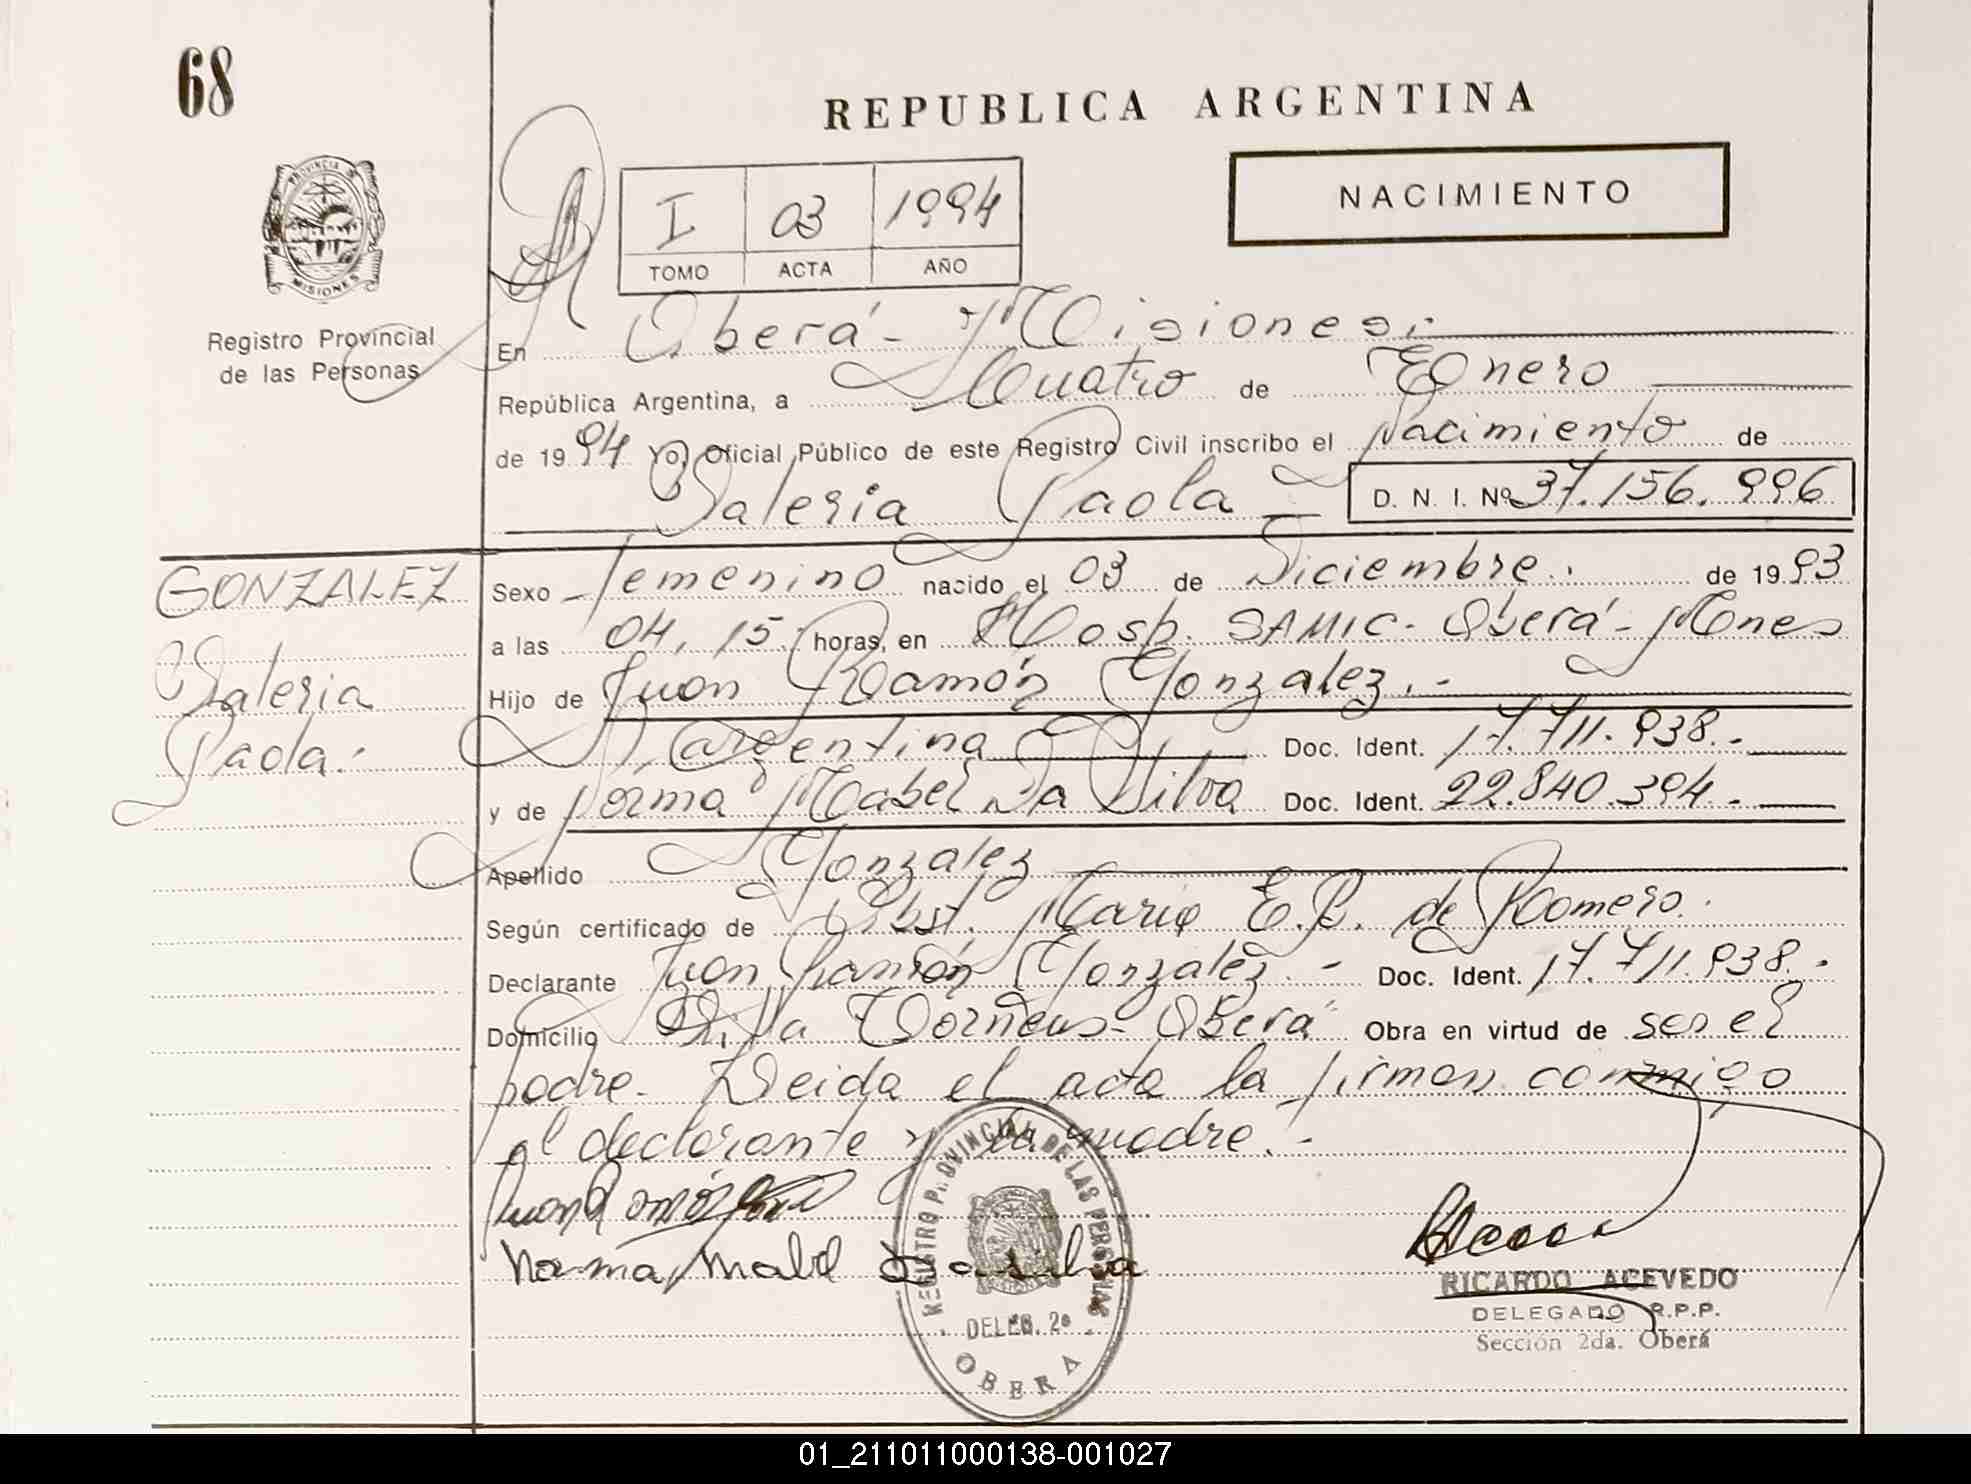 68
REPUBLICA ARGENTINA
NACIMIENTO
I 03 1994
TOMO ACTA AÑO
PROVINCIA DE MISIONES
Registro Provincial
de las Personas
En Oberá - Misiones.-
República Argentina, a Cuatro de Enero
de 1994 Yo, Oficial Público de este Registro Civil inscribo el Nacimiento de
Valeria Paola D. N. I. Nº 37.156.996
GONZALEZ
Valeria
Paola.
Sexo Femenino nacido el 03 de Diciembre. de 1993
a las 04,15 horas, en Hosp. SAMIC - Oberá - Mnes
Hijo de Juan Ramón Gonzalez.-
Argentina Doc. Ident. 17.711.938.-
y de Norma Mabel Da Silva Doc. Ident. 22.840.394.-
Apellido Gonzalez
Según certificado de Obst. María E.B. de Romero.
Declarante Juan Ramón Gonzalez.- Doc. Ident. 17.711.938.-
Domicilio Villa Oberá Obra en virtud de ser el
padre. Leida el acta la firman conmigo
el declarante y la madre.-
Juan Ramón
Norma Mabel Da silva
REGISTRO PROVINCIAL DE LAS PERSONAS
DELEG. 2ª
OBERA
RICARDO ACEVEDO
DELEGADO R.P.P.
Sección 2da. Oberá
01_211011000138-001027